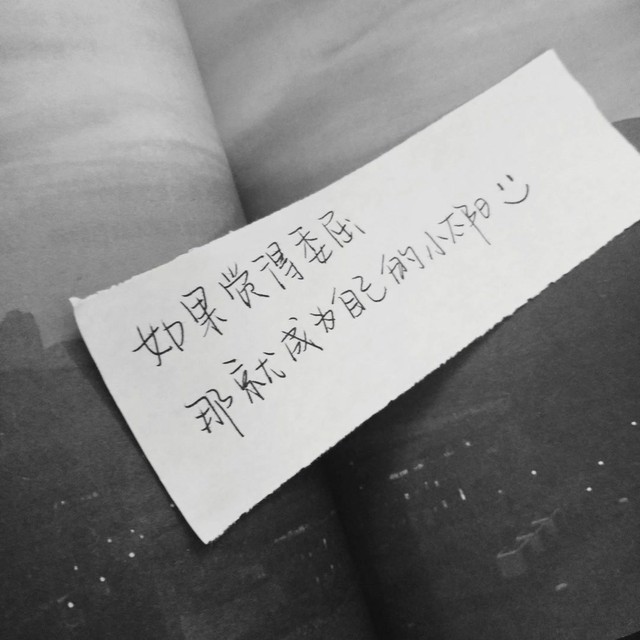 如果觉得委屈
那就成为自己的小太阳 :)